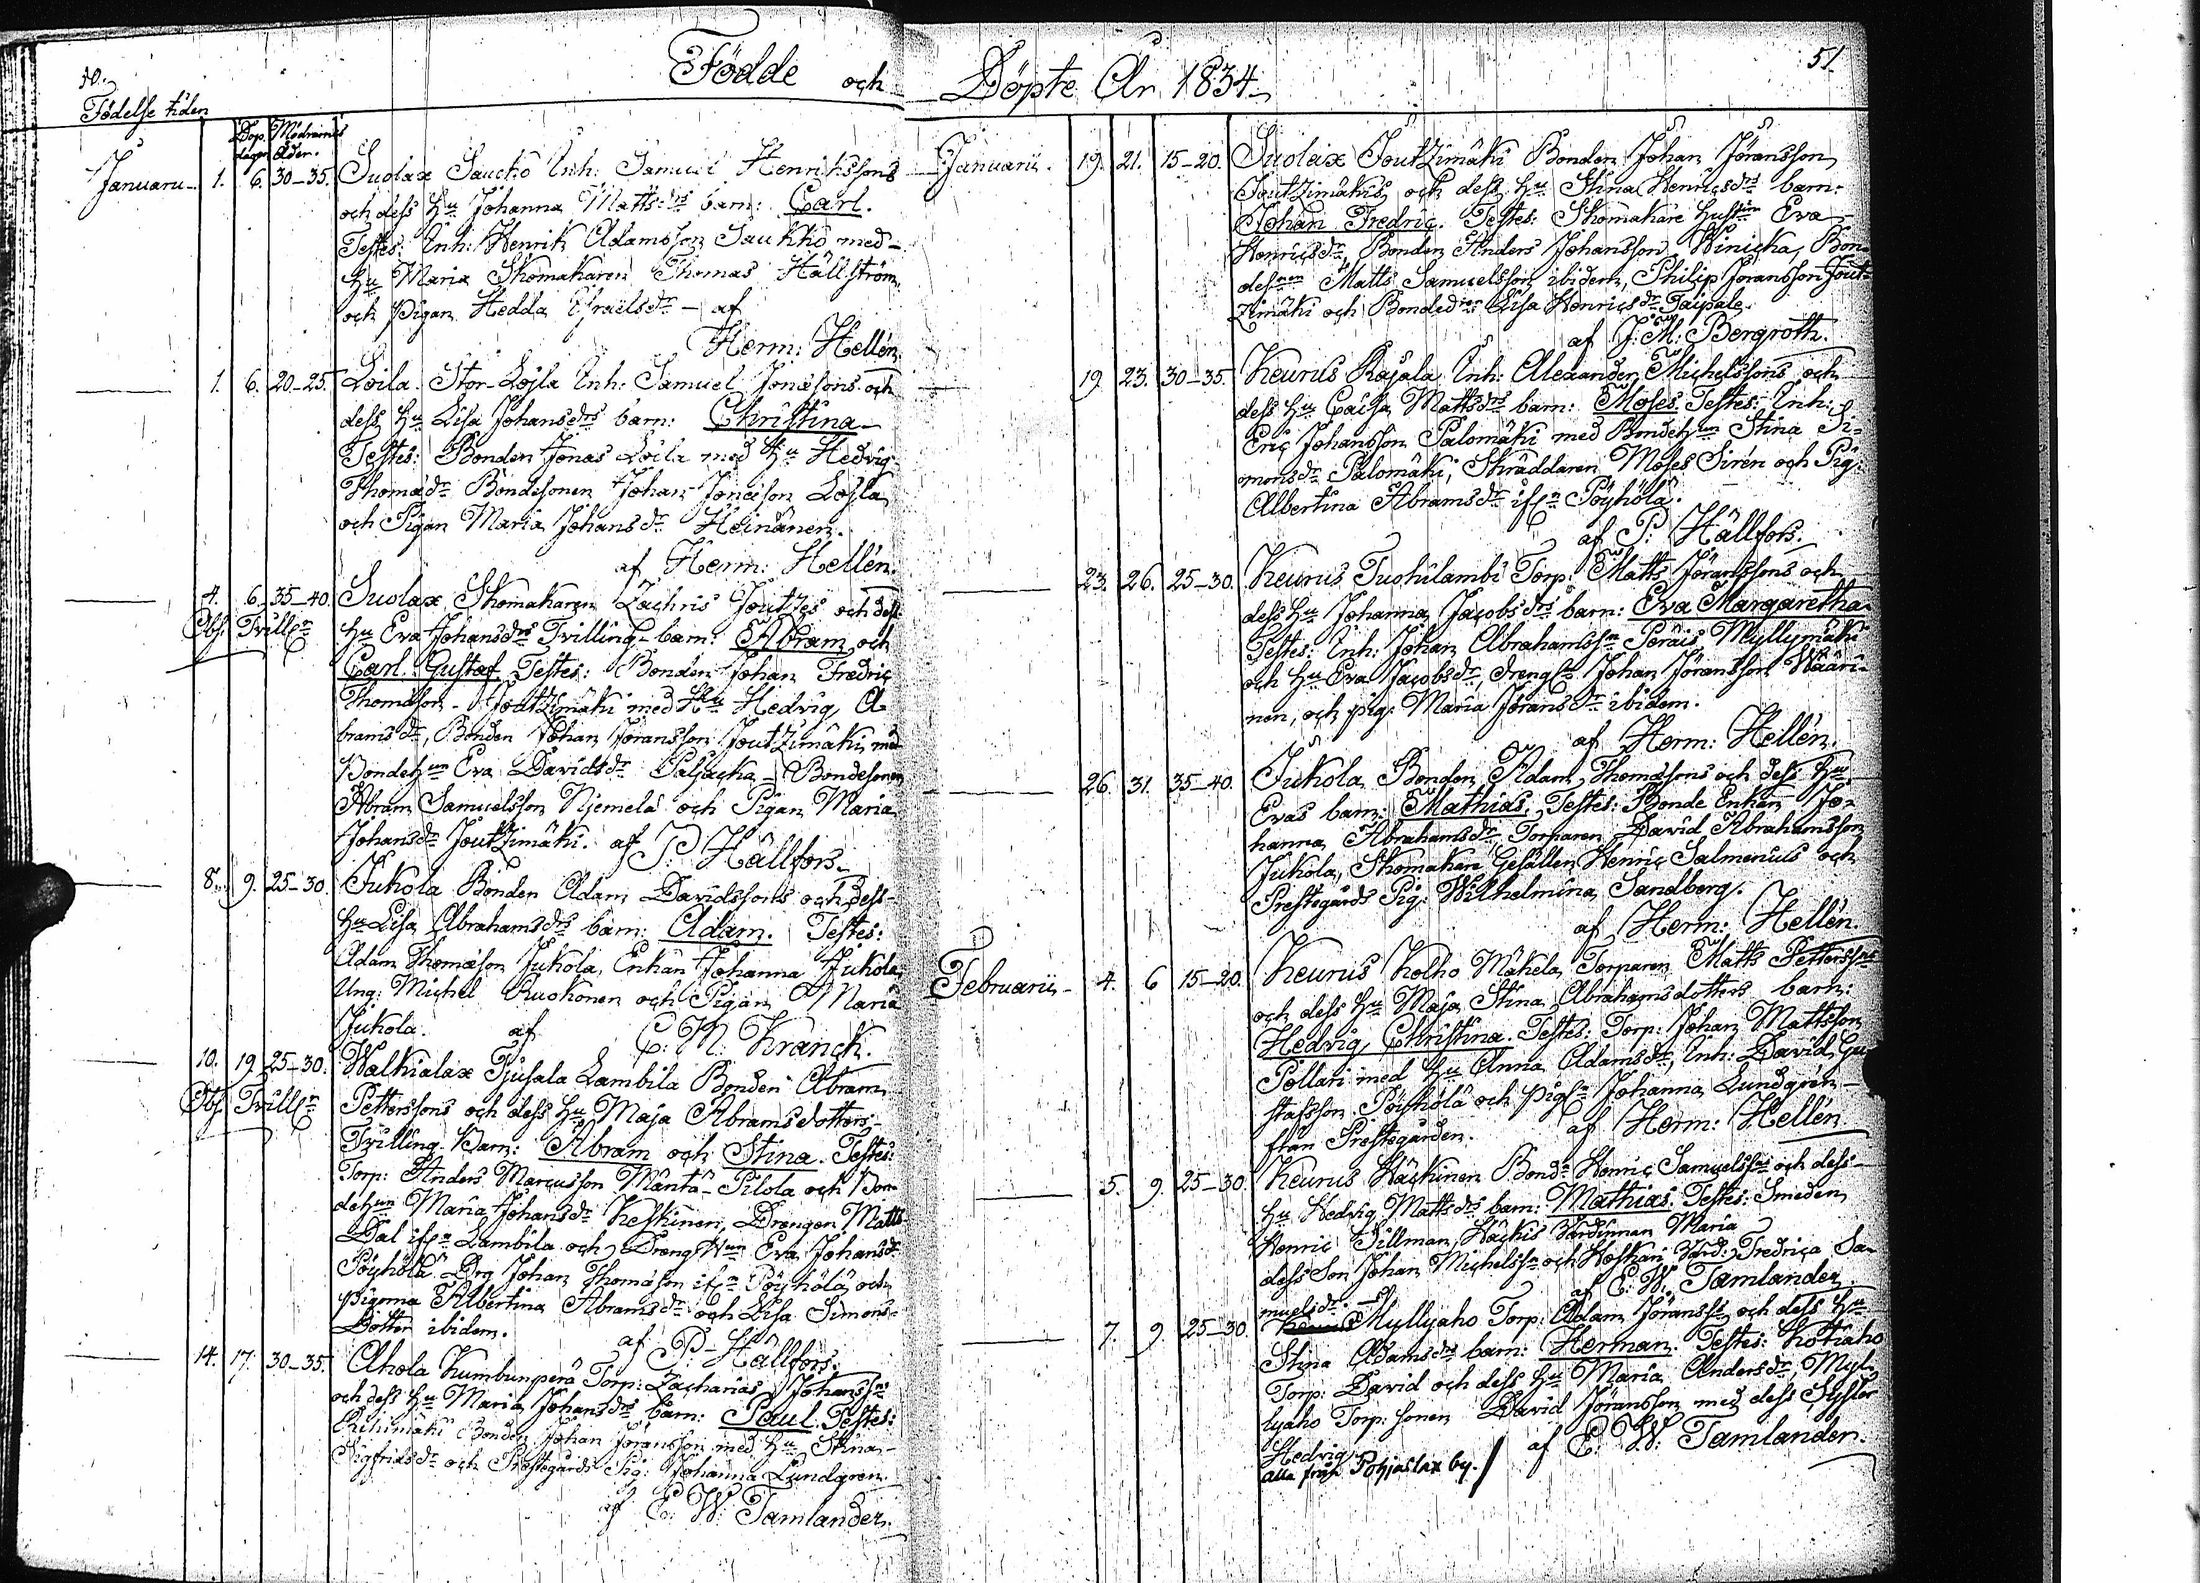 50.
Födde och
Födelse tiden
Dop dagen Mödrarnes ålder.
Januarii 1. 6. 30-35. Suolax Saucko Inh: Samuel Henrikssons
och dess Hu Johanna Matts:drs barn: Carl.
Testes: Inh: Henrik Adamsson Saukko med
Hu Maria Skomakaren Thomas Hällström,
och Pigan Hedda Israelsdr - af
Herm: Hellén.
1. 6. 20-25. Loila Stor-Lojla Inh: Samuel Jonæsons och
dess Hu Lisa Johansdrs barn: Christina
Testes: Bonden Jonas Loila med Hu Hedvig
Thomædr Bondesonen Johan Jonæson Lojla
och Pigan Maria Johansdr Heinänen.
af Herm: Hellén.
4. 6. 35-40. Suolax Skomakaren Zachris Joutzes och dess
Obs. Trilln Hu Eva Johansdrs Tvilling-barn: Abram och
Carl Gustaf Testes: Bonden Johan Fredric
Thomæson Joutzimäki med Hu Hedvig A-
bramsdr, Bonden Johan Jöransson Joutzimäki med
Bondehun Eva Davidsdr Paljacka - Bondesonen
Abram Samuelsson Njemelä och Pigan Maria
Johansdr Joutzimäki. af P: Hällfors.
8. 9. 25-30. Jukola Bonden Adam Davidssons och dess
Hu Lisa Abrahamsdrs barn: Adam. Testes:
Adam Thomæson Jukola, Enkan Johanna Jukola,
Ung: Michel Ruokonen och Pigan Maria
Jukola. af C: M: Kranck.
10. 19. 25-30. Walkialax Tjusala Lambila Bonden Abram
Obs. Trilln Petterssons och dess Hu Maja Abramsdotters
Tvilling Barn: Abram och Stina. Testes:
Torp: Anders Marcusson Mäntä-Pilola och Bon-
dehun Maria Johansdr Keskinen, Drengen Matts
Dal ifrn Lambila och Dreng Hun Eva Johansdr
Pöyhölä Drg Johan Thomæson ifrn Pöyhölä, och
pigorna Albertina Abramsdr och Lisa Simons-
Dotter ibidem.
af P: Hällfors.
14. 17. 30-35. Ahola Kumbunperä Torp: Zacharias Johanssns
och dess Hu Maria Johansdrs barn: Paul. Testes:
Riihimäki Bonden Johan Jöransson med Hu Stina
Sigfridsdr och Prestegårds Pig: Johanna Lundgren.
af E: W: Tamlander.
51.
Döpte År 1834
Januarii. 19. 21. 15-20. Suolax Joutzimäki Bonden Johan Jöransson
Joutzimäkis och dess Hu Stina Henricsdrs barn:
Johan Fredric. Testes: Skomakare Hustrun Eva
Henricsdr, Bonden Anders Johansson Winicka, Bon-
desnen Matts Samuelsson ibidem, Philip Jöransson Jout-
zimäki och Bondedren Lisa Henricsdr Taipale.
af J: M: Bergroth.
19. 23. 30-35. Keurus Rajala Inh: Alexander Michelssons och
dess Hu Caisa Mattsdrs barn: Moses. Testes: Inh:
Eric Johansson Palomäki med Bondehun Stina Si-
monsdr Palomäki, Skräddaren Moses Sirén och Pig:
Albertina Abramsdr ifrn Pöyhölä.
af P: Hällfors.
23. 26. 25-30. Keurus Tuohilambi Torp: Matts Jöranssons och
dess Hu Johanna Jacobsdrs barn: Eva Margaretha.
Testes: Inh: Johan Abrahamssn Peräis Myllymäki
och Hu Eva Jacobsdr, drengn Johan Jöransson Wääri-
nen, och pig: Maria Jöransdr ibidem.
af Herm: Hellén.
26. 31. 35-40. Jukola Bonden Adam Thomæsons och dess Hu
Evas barn: Mathias. Testes: Bonde Enkan Jo-
hanna Abrahamsdr Torparen David Abrahamsson
Jukola, Skomakare Gesällen Henric Salmenius och
Prestegårds Pig: Wilhelmina Sandberg.
af Herm: Hellén.
Februarii 4. 6 15-20. Keurus Kolho Mäkelä Torparen Matts Petterssns
och dess Hu Maja Stina Abrahamsdotters barn:
Hedvig Christina. Testes: Torp: Johan Mattsson
Pollari med Hu Anna Adamsdr, Inh: David Gu-
stafsson Pöyhölä och pign Johanna Lundgrén
från Prestegården. af Herm: Hellén
5. 9. 25-30. Keurus Häckinen Bondn Henric Samuelssns och dess
Hu Hedvig Mattsdrs barn: Mathias. Testes: Smeden
Henric Tillman, Häckis Värdinnan Maria
dess Son Johan Michelssn och Hoskari Värd: Fredrica Sa-
muelsdr. af E: W: Tamlander.
7. 9. 25-30. Myllyaho Torp: Adam Jöranssns och dess Hu
Stina Adamsdrs barn: Herman. Testes: Kotiaho
Torp: David och dess Hu Maria Andersdr, Myl-
lyaho Torp: sonen David Jöransson med dess Syster
Hedvig. af E: W: Tamlander.
alla från Pohjaslax by.